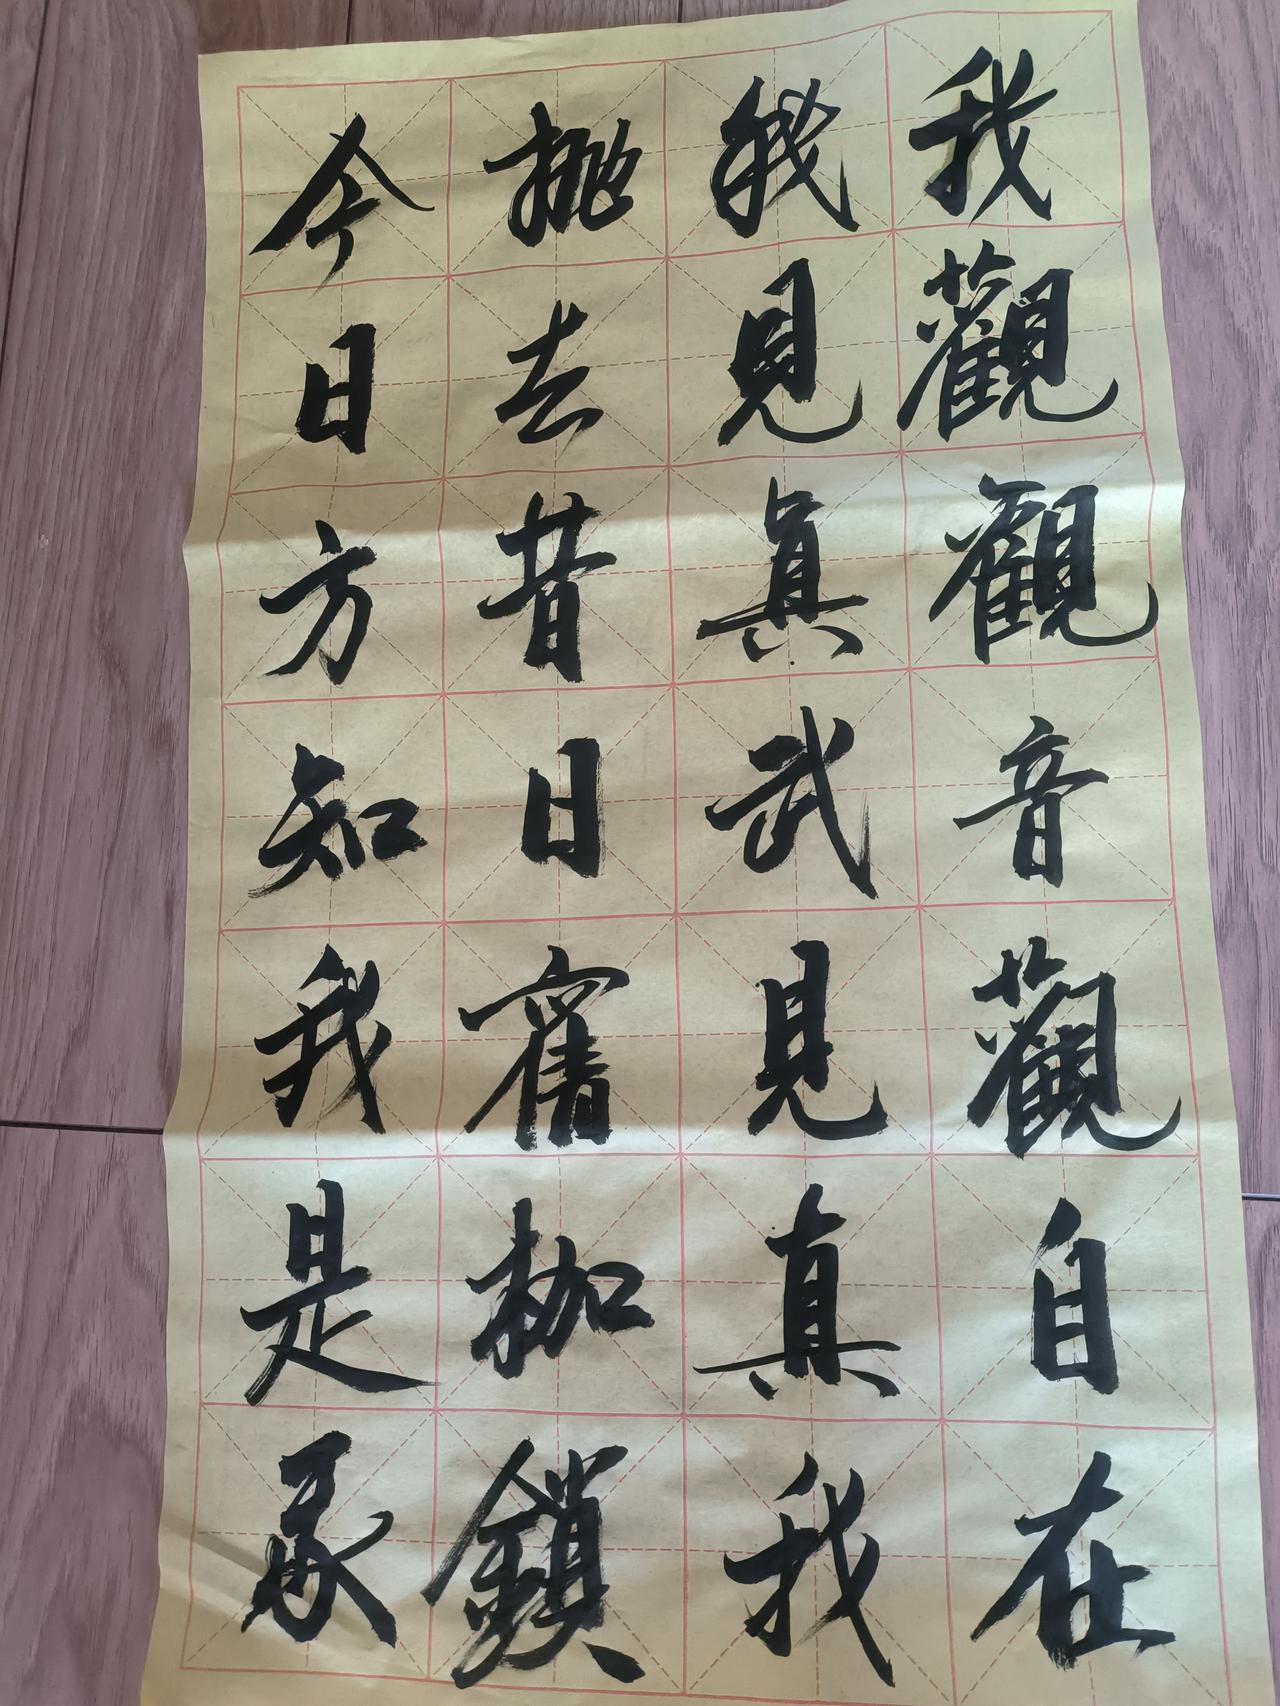 我觀觀音觀自在
我見真武見真我
抛去昔日舊枷鎖
今日方知我是承